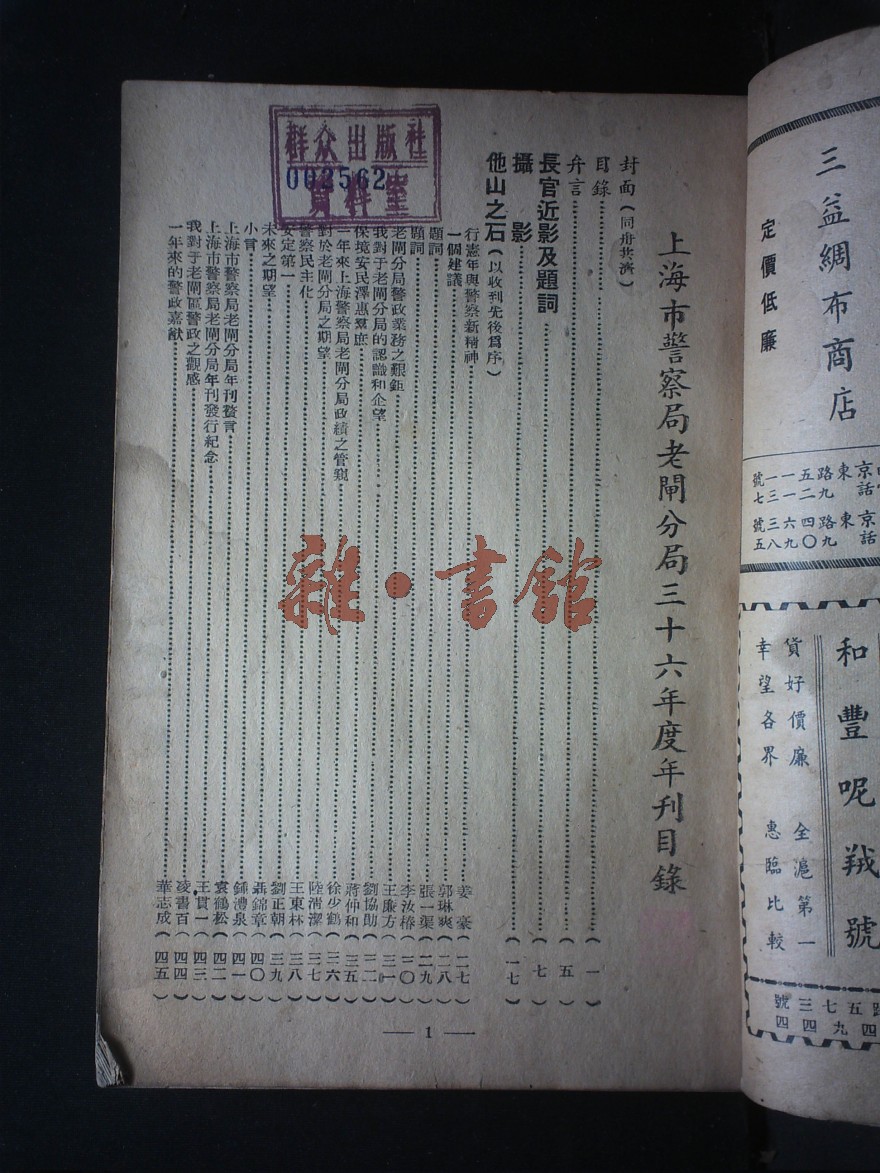 三益綢布商店
定價低廉
和豐呢羢號
貨好價廉 全滬第一
幸望各界 惠臨比較
上海市警察局老閘分局三十六年度年刊目錄
封面(同舟共濟)
目錄(一)
弁言(五)
長官近影及題詞(七)
攝影(一七)
他山之石(以收到先後爲序)
行憲年與警察新精神 姜豪(二七)
一個建議 郭琳爽(二八)
題詞 張一渠(二九)
題詞 李汝椿(三〇)
老閘分局警政業務之艱鉅 王廉方(三一)
我對于老閘分局的認識和企望 劉協勛(三二)
保境安民澤惠羣庶 蔣仲和(三五)
一年來上海警察局老閘分局政績之管窺 徐少鶴(三六)
對於老閘分局之期望 陸淸潔(三七)
警察民主化 王東林(三八)
安定第一 劉正朝(三九)
未來之期望 聶錦章(四〇)
小言 鍾澧泉(四一)
上海市警察局老閘分局年刊贅言 袁鶴松(四二)
上海市警察局老閘分局年刊發行紀念 王貫一(四三)
我對于老閘區警政之觀感 凌書百(四四)
一年來的警政嘉猷 華志成(四五)
— 1 —
群众出版社
002562
資料室
雜·書館